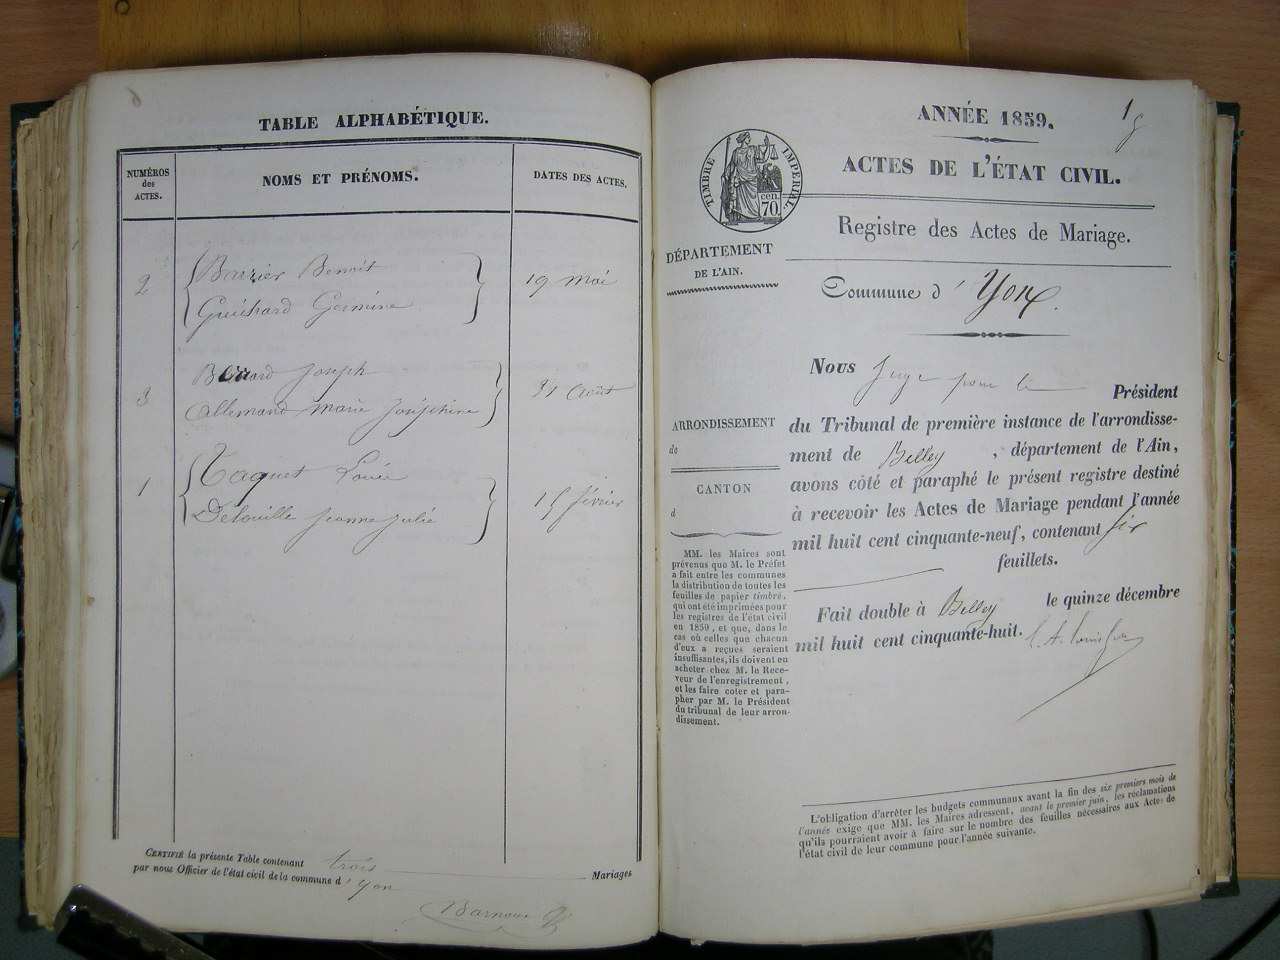 TABLE ALPHABÉTIQUE.
NUMÉROS
des
ACTES.
NOMS ET PRÉNOMS.
DATES DES ACTES.
2
Barrier Benoit
Guichard Germine
19 mai
3
Joseph
Allemand marie Joséphine
31 Août
1
Taquet Louis
Delouille Jeanne Julie
15 février
CERTIFIÉ la présente Table contenant trois Mariages
par nous Officier de l'état civil de la commune d' Yon
ANNÉE 1859.
1
ACTES DE L'ÉTAT CIVIL.
TIMBRE IMPÉRIAL
cen.
70
Registre des Actes de Mariage.
DÉPARTEMENT
DE L'AIN.
Commune d' Yon.
ARRONDISSEMENT
de
CANTON
d
MM. les Maires sont
prévenus que M. le Préfet
a fait entre les communes
la distribution de toutes les
feuilles de papier timbré,
qui ont été imprimées pour
les registres de l'état civil
en 1859, et que, dans le
cas où celles que chacun
d'eux a reçues seraient
insuffisantes, ils doivent en
acheter chez M. le Rece-
veur de l'enregistrement,
et les faire coter et para-
pher par M. le Président
du tribunal de leur arron-
dissement.
Nous Juge pour le Président
du Tribunal de première instance de l'arrondisse-
ment de Belley, département de l'Ain,
avons côté et paraphé le présent registre destiné
à recevoir les Actes de Mariage pendant l'année
mil huit cent cinquante-neuf, contenant six
feuillets.
Fait double à Belley le quinze décembre
mil huit cent cinquante-huit.
L'obligation d'arrêter les budgets communaux avant la fin des six premiers mois de
l'année exige que MM. les Maires adressent, avant le premier juin, les réclamations
qu'ils pourraient avoir à faire sur le nombre des feuilles nécessaires aux Actes de
l'état civil de leur commune pour l'année suivante.